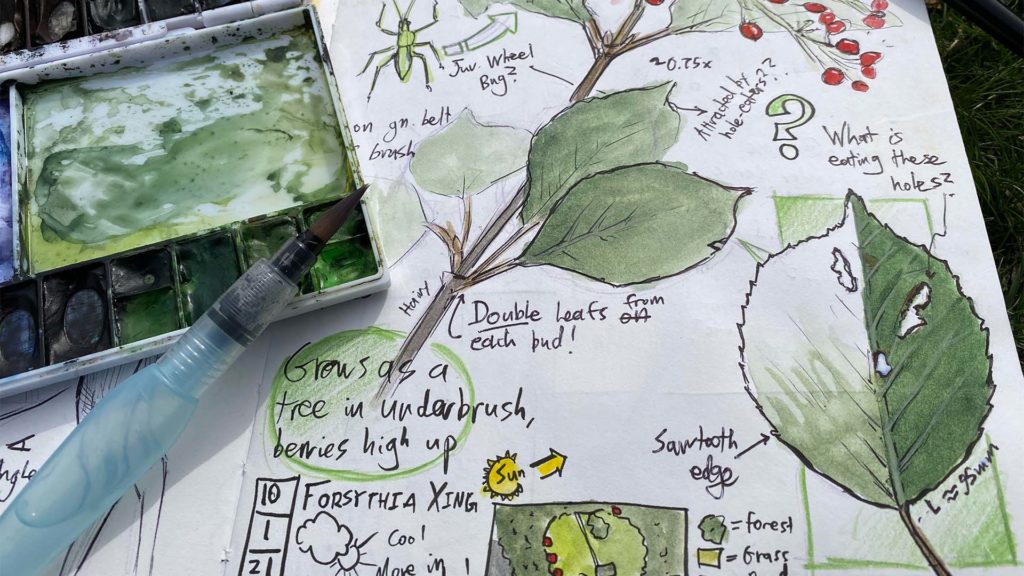 Juv. Wheel
Bug?
~0.75x
Attracted by
hole-eaters??
?
What is
eating these
holes?
on gn. belt
brush
Hairy
Double leafs from
each bud!
Grows as a
tree in underbrush,
berries high up
Sawtooth
edge
L ≈ 95mm
Sun
10
1
21
FORSYTHIA XING
Cool
More in
= forest
= Grass
A